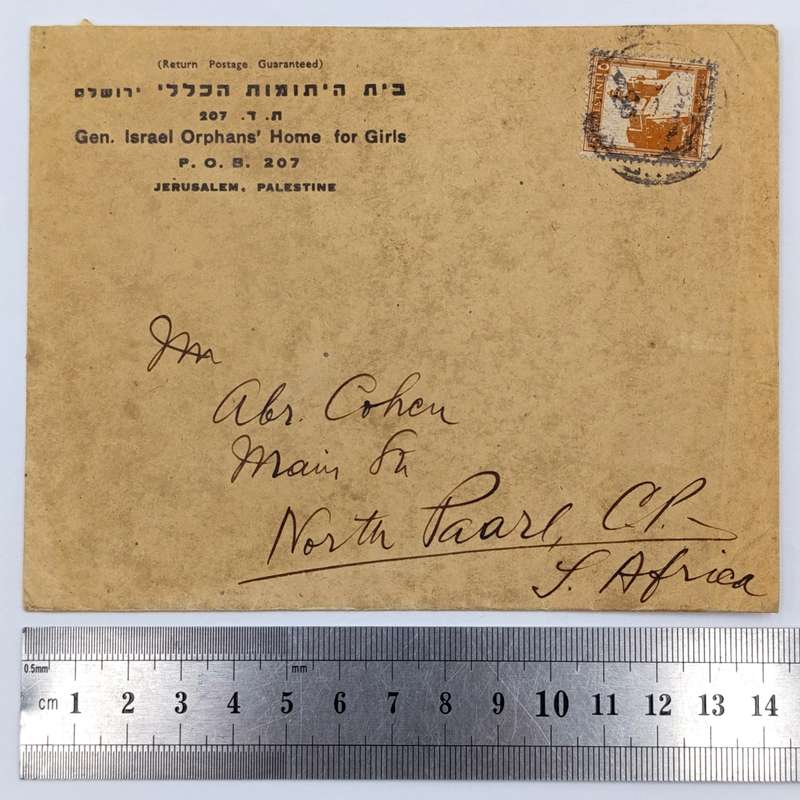 (Return Postage Guaranteed)
בית היתומות הכללי ירושלם
ת. ד. 207
Gen. Israel Orphans' Home for Girls
P. O. B. 207
JERUSALEM, PALESTINE
Mr
Abr. Cohen
Main St
North Paarl, C.P.
S. Africa
0.5mm mm
cm 1 2 3 4 5 6 7 8 9 10 11 12 13 14